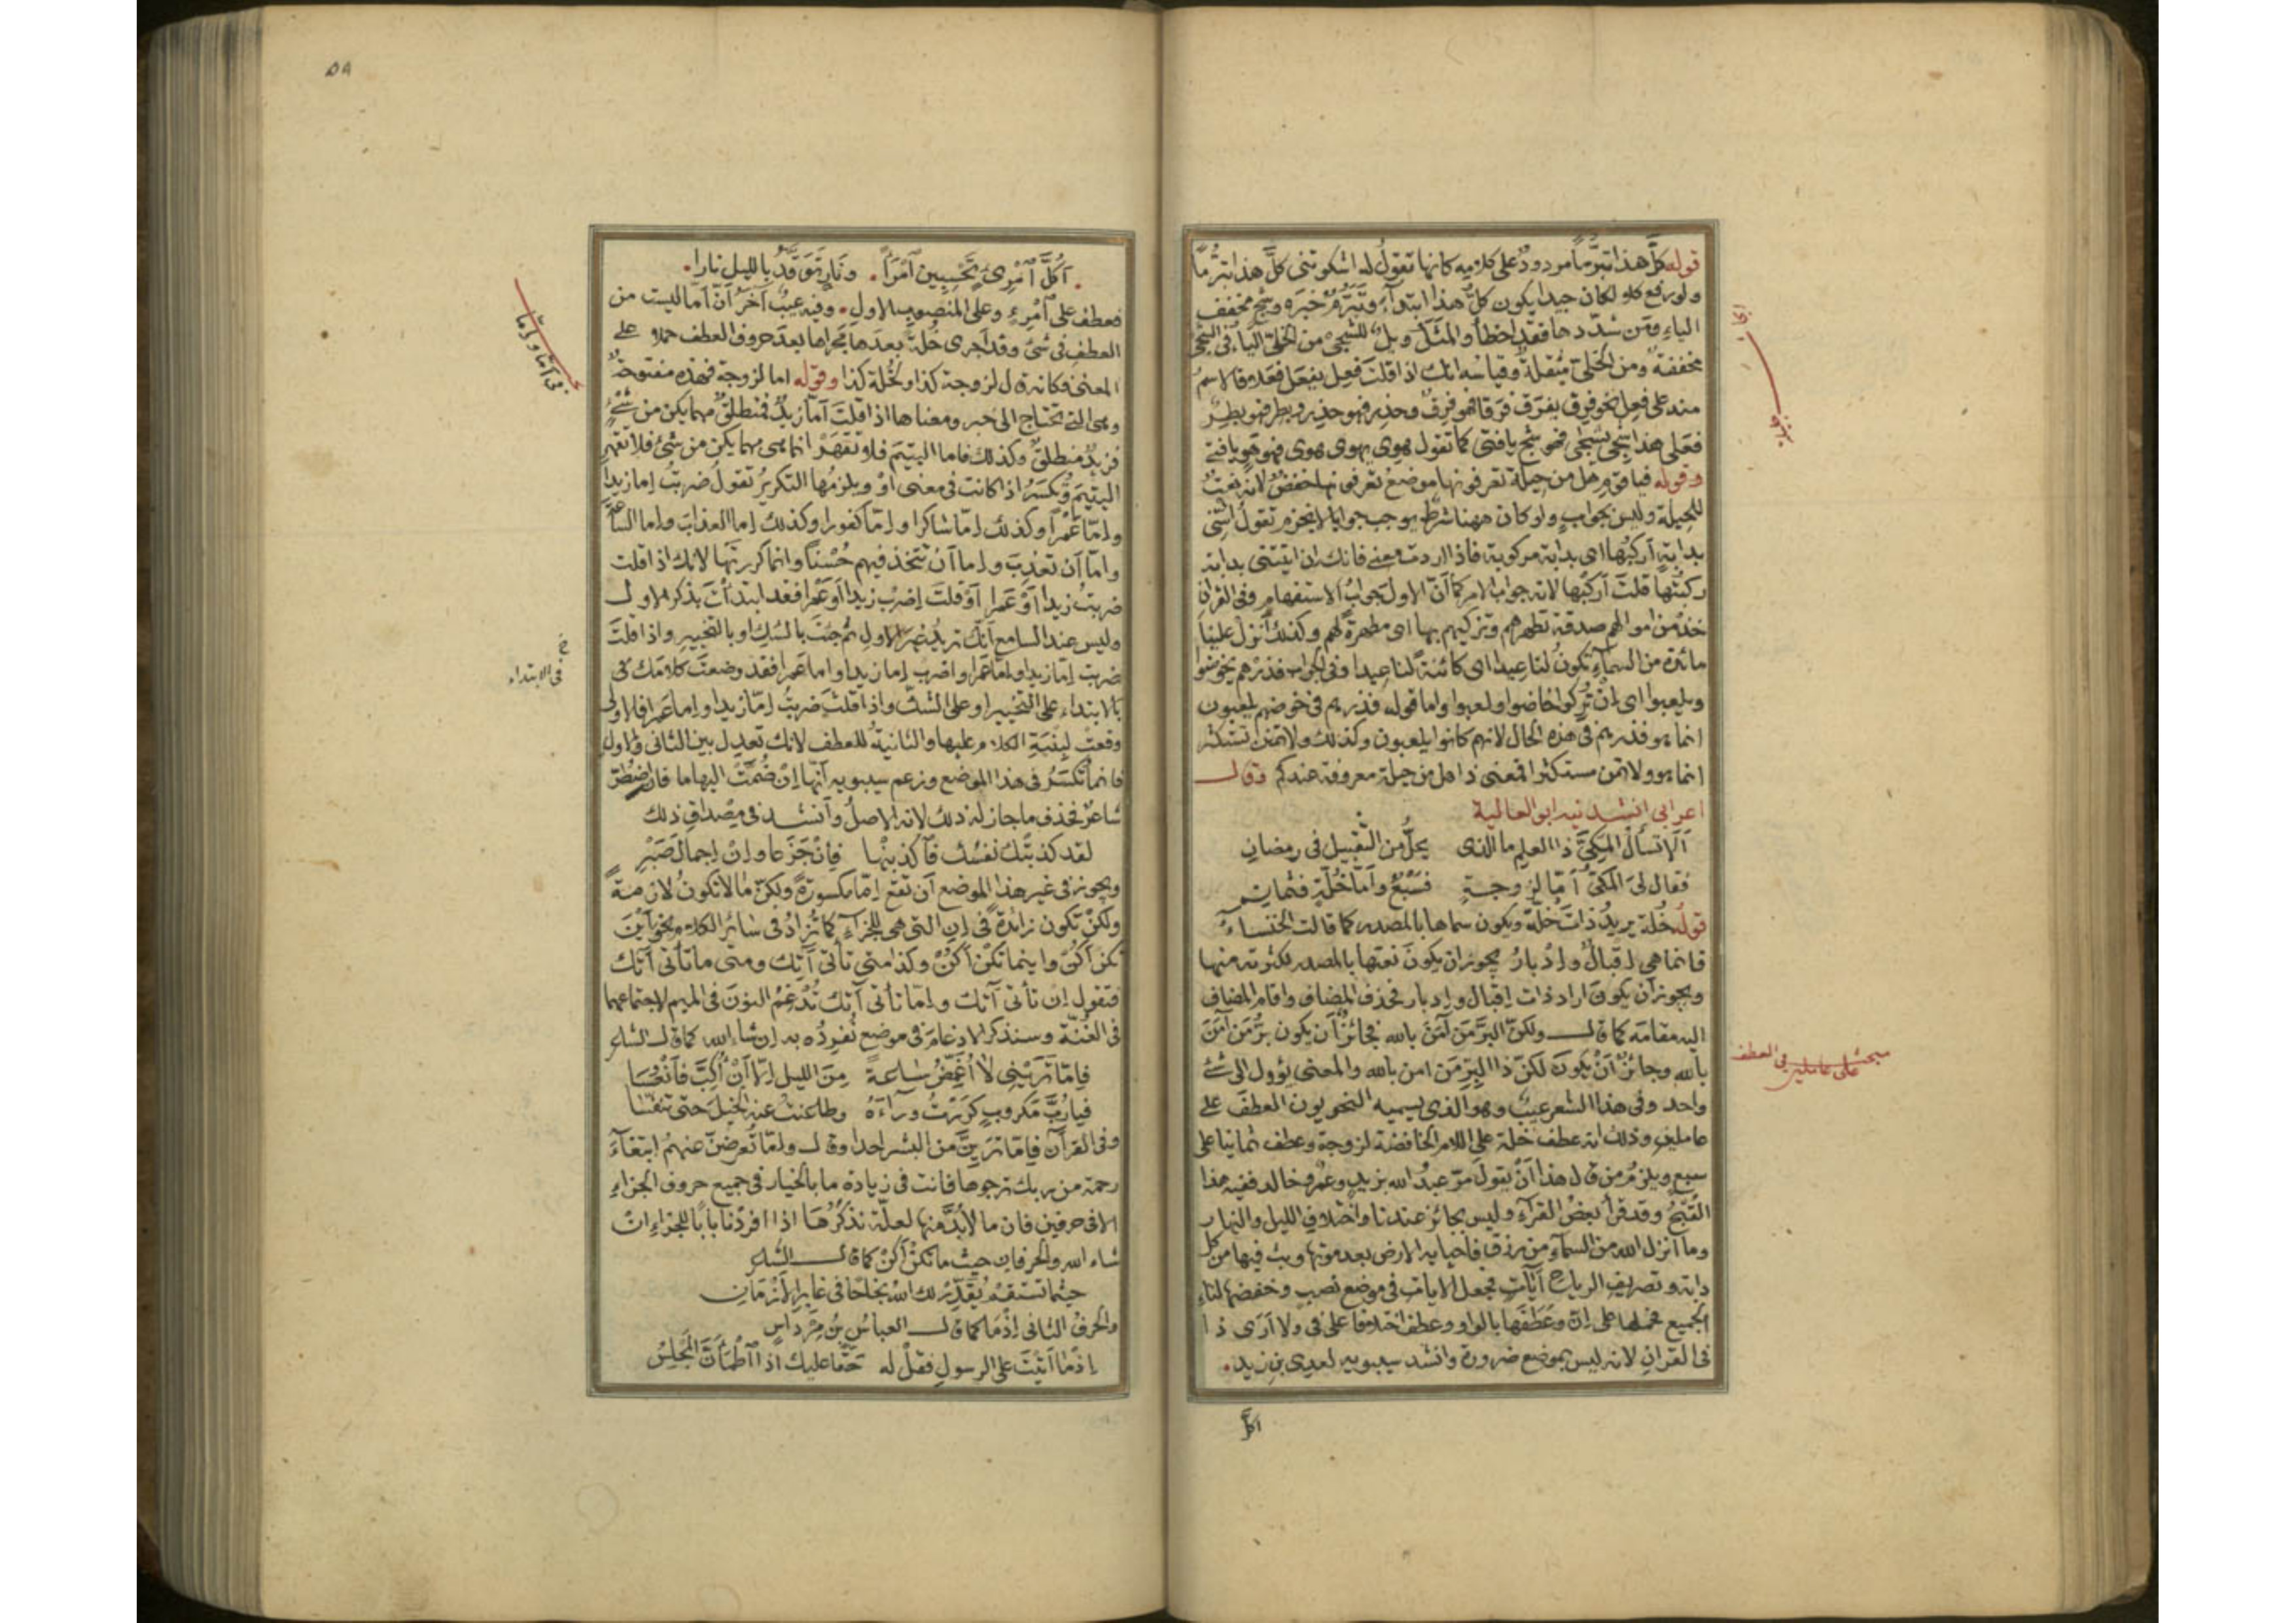 قوله كلَّ هذا تبرّماً مردودٌ على كلامه كانها تقول له اشكوتني كلَّ هذا تبرّماً
ولو رفع كلا لكان جيدا يكون كلُّ هذا ابتداءً وتبرّمٌ خبره وشجٍ مخفف
الياء ومن شدّدها فقد اخطأ والمثل ويلٌ للشجي من الخليّ الياء في الشجي
مخففة ومن الخليّ مثقلة وقياسه انك اذا قلت فعِل يفعَل فعَلا فالاسم
منه على فعِل نحو فرِق يفرَق فرَقا فهو فرِق وحذِر فهو حذِر وبطِر فهو بطِر
فعلى هذا شجي يشجى فهو شجٍ يا فتى كما تقول هوِي يهوى هوى فهو هوٍ يا فتى
وقوله فيا قوم هل من حيلة تعرفونها موضع تعرفونها خفضٌ لانه نعتٌ
للحيلة وليس بجواب ولو كان ههنا شرط يوجب جوابا لانجزم تقول ائتني
بدابةٍ اركبُها اى بدابة مركوبة فاذا اردت معنى فانك ان اتيتني بدابة
ركبتُها قلتَ اركبْها لانه جواب الامر كما انّ الاول جواب الاستفهام وفى القران
خذ من اموالهم صدقة تطهرهم وتزكيهم بها اى مطهرةً لهم وكذلك أنزل علينا
مائدة من السماء تكونُ لنا عيدا اى كائنةً لنا عيدا وفى الجواب فذرهم يخوضوا
ويلعبوا اى ان تُركوا خاضوا ولعبوا واما قوله فذرهم فى خوضهم يلعبون
انما هو فذرهم فى هذه الحال لانهم كانوا يلعبون وكذلك ولا تمنن تستكثر
انما هو ولا تمنن مستكثرا فمعنى ذا هل من حيلة معروفة عندكم وقال
اعرابي انشدنيه ابو العالية
اَلَا تسأل المكيَّ ذا العلم ما الذى يحلُّ من التقبيل فى رمضان
فقال لىَ المكيُّ أمّا لزوجةٍ فسَبْعٌ وأمّا خُلّةٍ فثمان
قوله خُلة يريد ذات خُلّة ويكون سماها بالمصدر كما قالت الخنساء
فانما هي اقبالٌ وادبارُ يجوز ان يكون نعتها بالمصدر لكثرته منها
ويجوز أن يكون اراد ذات اقبال وادبار فحذف المضاف واقام المضاف
اليه مقامه كما قال ولكنّ البرَّ مَن آمَنَ بالله فجائزٌ أن يكون برُّ مَن آمَنَ
بالله وجائزٌ أنْ يكون لكنّ ذا البرّ مَن امن بالله والمعنى يؤول الى شئ
واحد وفى هذا الشعر عيبٌ وهو الذى يسميه النحويون العطف على
عاملين وذلك انه عطف خلة على اللام الخافضة لزوجة وعطف ثمانيا على
سبع ويلزم من قال هذا أنْ يقول مرّ عبدُ الله بزيدٍ وعمرٌو خالد ففيه هذا
القُبْحُ وقد قرأ بعضُ القرّاء وليس بجائز عندنا واختلاف الليل والنهار
وما انزل الله من السماء من رزق فاحيا به الارض بعد موتها وبث فيها من كل
دابة وتصريف الرياح آياتٍ فجعل الايات فى موضع نصبٍ وخفضها لتاء
الجميع فحملها على إنّ وعَطَفَها بالواو وعطف اختلافا على فى ولا أرَى ذا
فى القران لانه ليس بموضع ضرورة وانشد سيبويه لعدى بن زيد
اكلَّ
مبحث فى العطف
على عاملين
٥٨
أكُلَّ ٱمْرِئٍ تَحْسِبينَ ٱمْرَأً ونَارٍ تَوَقَّدُ بالليل نارا
فعطف على ٱمْرِئٍ وعلى المنصوب الاول وفيه عيبٌ آخرُ أنّ أمّا ليست من
العطف فى شئ وقد أجرى خُلّة بعدها مجراها بعد حروف العطف حملا على
المعنى فكانه قال لزوجة كذا ولخُلة كذا وقوله اما لزوجة فهذه مفتوحةٌ
وهى التي تحتاج الى خبر ومعناها اذا قلت أمّا زيدٌ فمنطلقٌ مهما يكن من شئٍ
فزيدٌ منطلقٌ وكذلك فاما اليتيمَ فلا تقهَرْ انما هى مهما يكن من شئ فلا تقهر
اليتيمَ وتُكسَرُ اذا كانت فى معنى أوْ ويلزمُها التكريرُ تقولُ ضربتُ إما زيدا
وإمّا عَمْرًا وكذلك إمّا شاكرا وإمّا كفورا وكذلك إما العذابَ وإما الساعةَ
وإمّا أن تعذّبَ وإما أن تتخذ فيهم حُسْناً وانما كررتَها لانك اذا قلت
ضربتُ زيدا أوْ عَمرا أوْ قلتَ إضرب زيدا أو عَمْرا فقد ابتدأتَ بذكر الاول
وليس عند السامع أنّك تريد غيرَ الاول ثم جئتَ بالشك او بالتخيير واذا قلت
ضربت إما زيدا وإمّا عَمرا واضرب إما زيدا واما عَمرا فقد وضعتَ كلامك فى
بالابتداء على التخيير او على الشك واذا قلتَ ضربتُ إمّا زيدا وإما عَمرا فالاولى
وقعتْ لبِنْيَةِ الكلام عليها والثانيةُ للعطف لانك تعدل بين الثانى والاول
فانما تُكسَرُ فى هذا الموضع وزعم سيبويه أنّها إنْ ضُمّتْ اليها ما فان اضطُرّ
شاعرٌ فحذف ما جاز له ذلك لانه الاصلُ وأنشد فى مِصْداق ذلك
لقد كذبَتْك نفسُك فٱكذبنْها فإنْ جَزَعا وإنْ إجمالَ صَبْرِ
ويجوز فى غير هذا الموضع أن تقع إمّا مكسورةً ولكنّ ما لا تكونُ لازمةً
ولكنْ تكون زائدةً فى إن التى هى للجزاء كما تُزادُ فى سائر الكلام نحو أيْنَ
تكن أكُنْ وأينما تكنْ أكُنْ وكذا متى تأتنى آتِك ومتى ما تأتنى آتِك
فتقول إن تأتنى آتِك وإمّا تأتنى آتِك تُدْغِمُ النونَ فى الميم لاجتماعهما
فى الغُنّة وسنذكر الادغامَ فى موضع نُفرِدُه به إن شاء الله كما قال الشاعر
فإمّا تَرَيْنِى لَا أُغَمِّضُ ساعةً مِنَ الليل إلّا أنْ أُكِبَّ فأنْعُسَا
فيا رُبَّ مكروبٍ كرَرْتُ ورآءَهُ وطاعنتُ عنه الخيلَ حتى تنفّسا
وفى القرآن فإمّا تَرَينّ من البشر احدا وقال وإمّا تُعرِضنّ عنهمُ ابتغآءَ
رحمة من ربك ترجوها فانت فى زيادة ما بالخيار فى جميع حروف الجزاء
الا فى حرفين فان ما لابُدَّ منها لعلّة نذكرُهَا اذا افردْنا بابًا للجزاء انْ
شاء الله والحرفان حيث ما تكنْ أكنْ كما قال الشاعر
حيثما تستقمْ يُقدِّرْ لك اللهُ نجاحًا فى غابرِ الأزمَانِ
والحرفُ الثانى إذْمَا كما قال العباسُ بنُ مِرْداسٍ
إذْما أتَيْتَ على الرسولِ فقلْ له حَقّا عليك اذا ٱطْمَأنّ المجلِسُ
فى أمّا وإمّا
خ
فى الابتداء